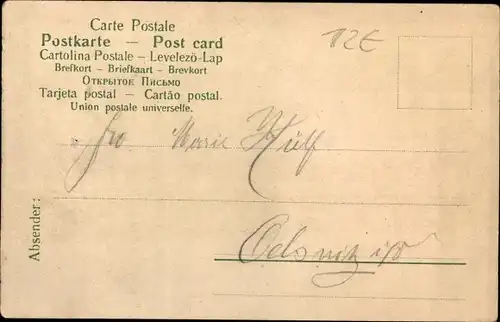 Carte Postale
Postkarte — Post card
Cartolina Postale – Levelezö-Lap
Brefkort – Briefkaart – Brevkort
Открытое Письмо
Tarjeta postal – Cartão postal.
Union postale universelle.
12E
Marie
Oelsnitz i/
Absender: